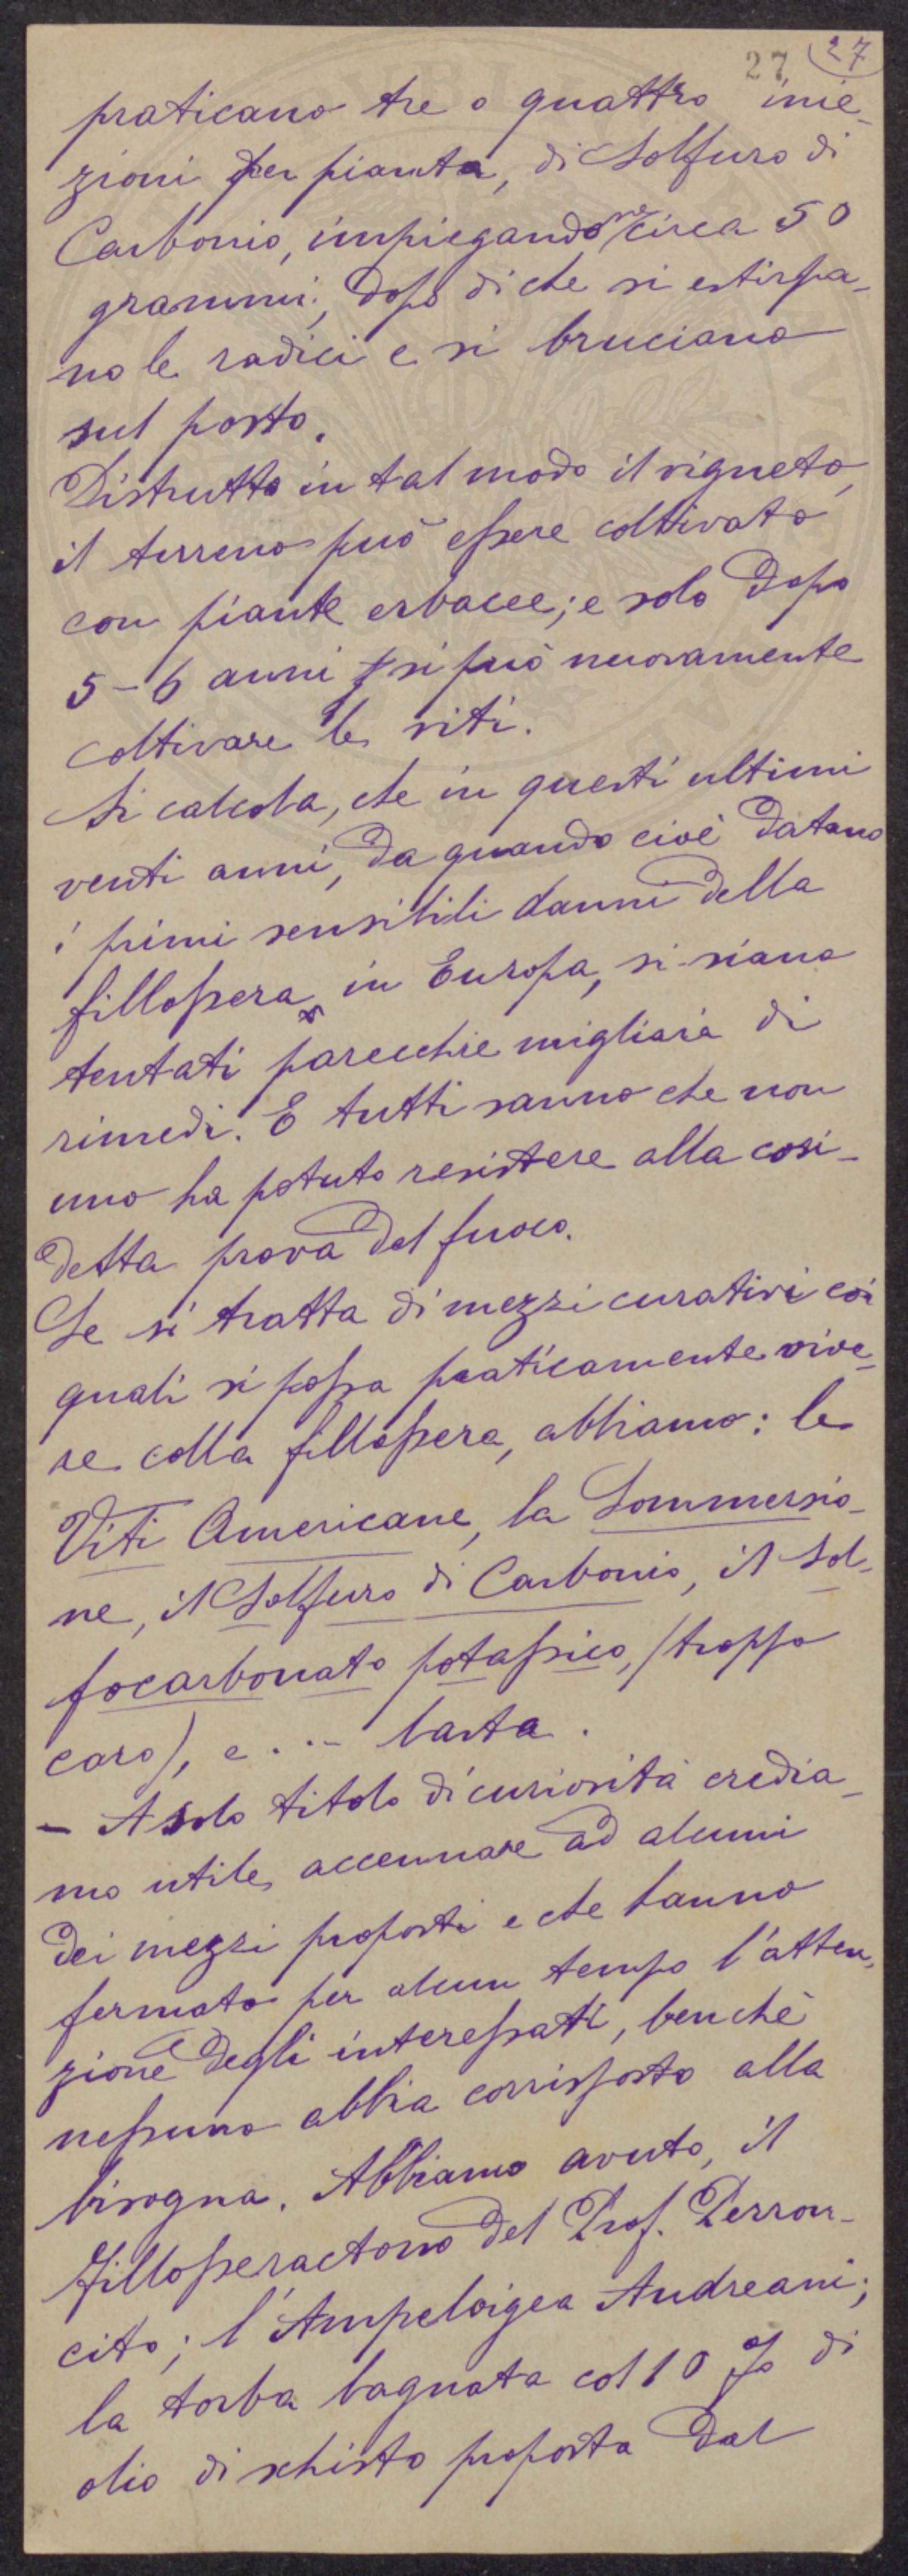 27 27
praticano tre o quattro inie-
zioni per pianta, di Solfuro di
Carbonio, impiegandone circa 50
grammi; dopo di che si estirpa-
no le radici e si bruciano
sul posto.
Distrutto in tal modo il vigneto,
il terreno può essere coltivato
con piante erbacee; e solo dopo
5-6 anni si può nuovamente
coltivare le viti.
Si calcola, che in questi ultimi
venti anni, da quando cioè datano
i primi sensibili danni della
fillossera in Europa, si siano
tentati parecchie migliaia di
rimedi. E tutti sanno che non
uno ha potuto resistere alla cosi-
detta prova del fuoco.
Se si tratta di mezzi curativi coi
quali si possa praticamente vive-
re colla fillossera, abbiamo: le
Viti Americane, la Sommersio-
ne, il Solfuro di Carbonio, il Sol-
focarbonato potassico, (troppo
caro), e ... basta.
- A solo titolo di curiosità credia-
mo utile accennare ad alcuni
dei mezzi proposti e che hanno
fermato per alcun tempo l'atten-
zione degli interessati, benchè
nessuno abbia corrisposto alla
bisogna. Abbiamo avuto, il
fillosseractono del Prof. Perron-
cito; l'Ampeloigea Andreani;
la torba bagnata col 10 % di
olio di schisto proposta dal